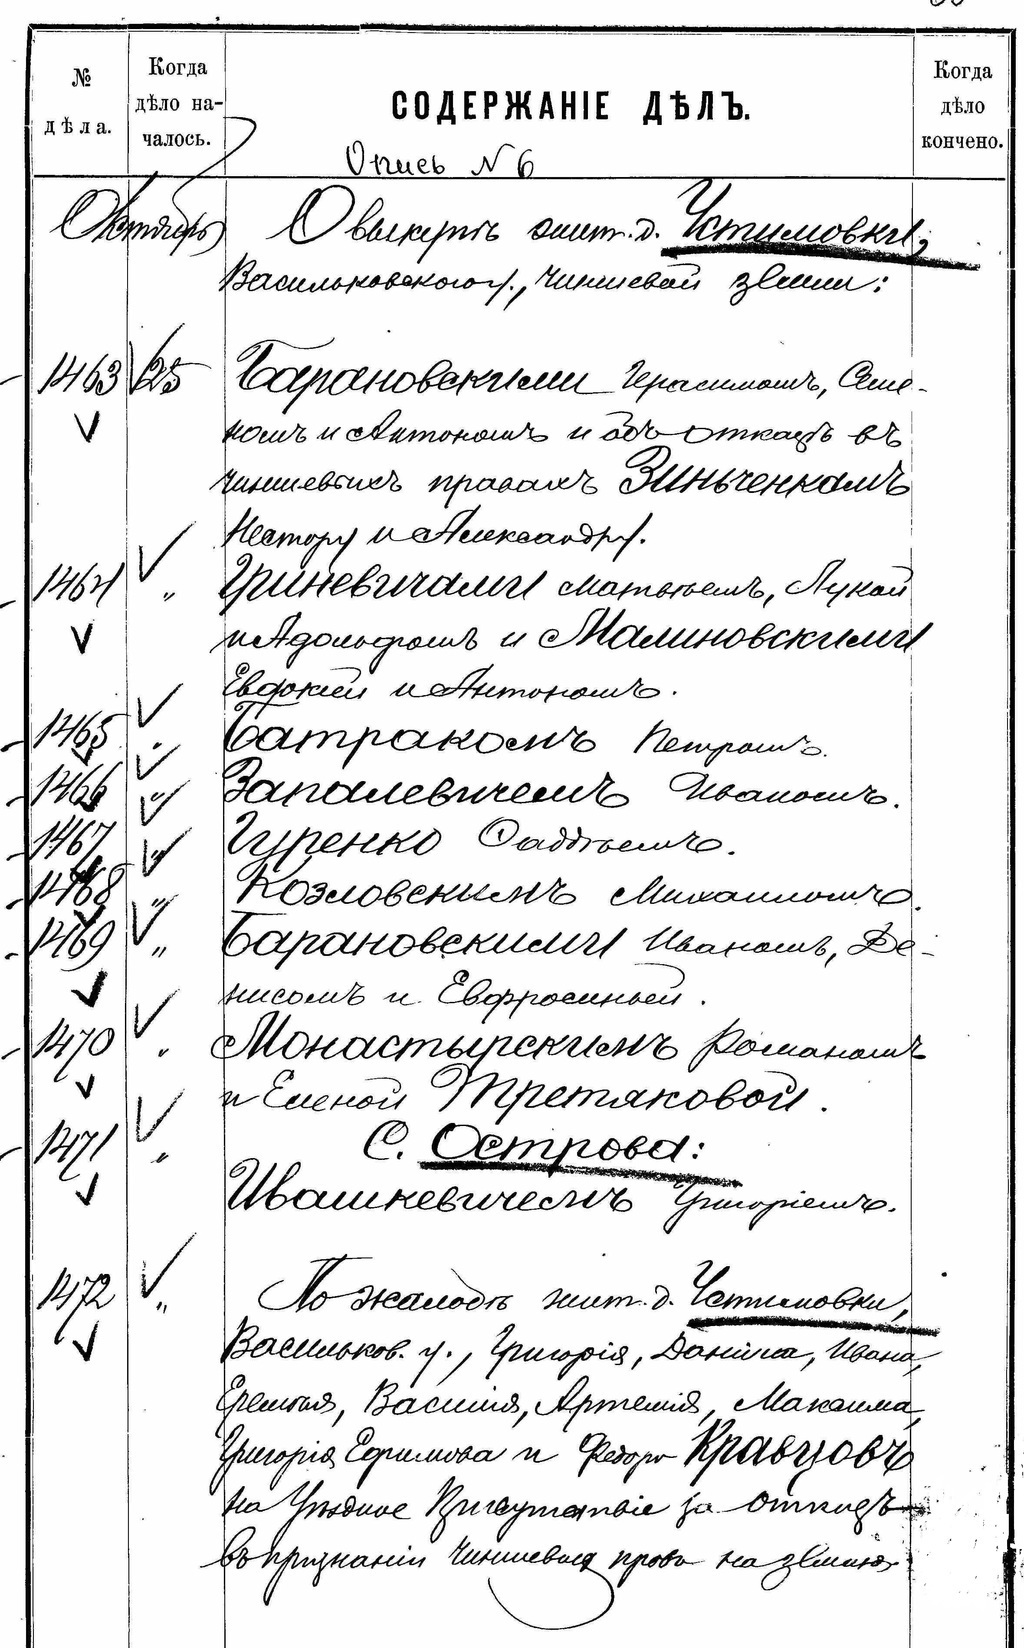 № дѣла.
Когда дѣло на-чалось.
СОДЕРЖАНІЕ ДѢЛЪ.
Когда дѣло кончено.
Опись № 6
Октябрь О выкупѣ жит. д. Устимовки,
Васильковского у., чиншевой земли:
1463 25 Барановскими Герасимомъ, Семе-
номъ и Антономъ и объ отказѣ въ
чиншевыхъ правахъ Зинченкамъ
Нестору и Александру.
1464 „ Гриневичами Матвѣемъ, Лукой
и Адольфомъ и Малиновскими
Евфокіей и Антономъ.
1465 „ Батракомъ Петромъ.
1466 „ Запалевичемъ Иваномъ.
1467 „ Гуренко Фаддѣемъ.
1468 „ Козловскимъ Михаиломъ.
1469 „ Барановскими Иваномъ, Де-
нисомъ и Евфросиньей.
1470 „ Монастырскимъ Романомъ
и Еленой Третяковой.
1471 „ С. Острова:
Ивашкевичемъ Григоріемъ.
1472 „ По жалобѣ жит. д. Устимовки,
Васильков. у., Григорія, Даніила, Ивана,
Еремѣя, Василія, Артемія, Максима,
Григорія Ефимова и Федора Кравцовъ
на Уѣздное Присутствіе за отказъ
въ признаніи чиншевыхъ правъ на землю